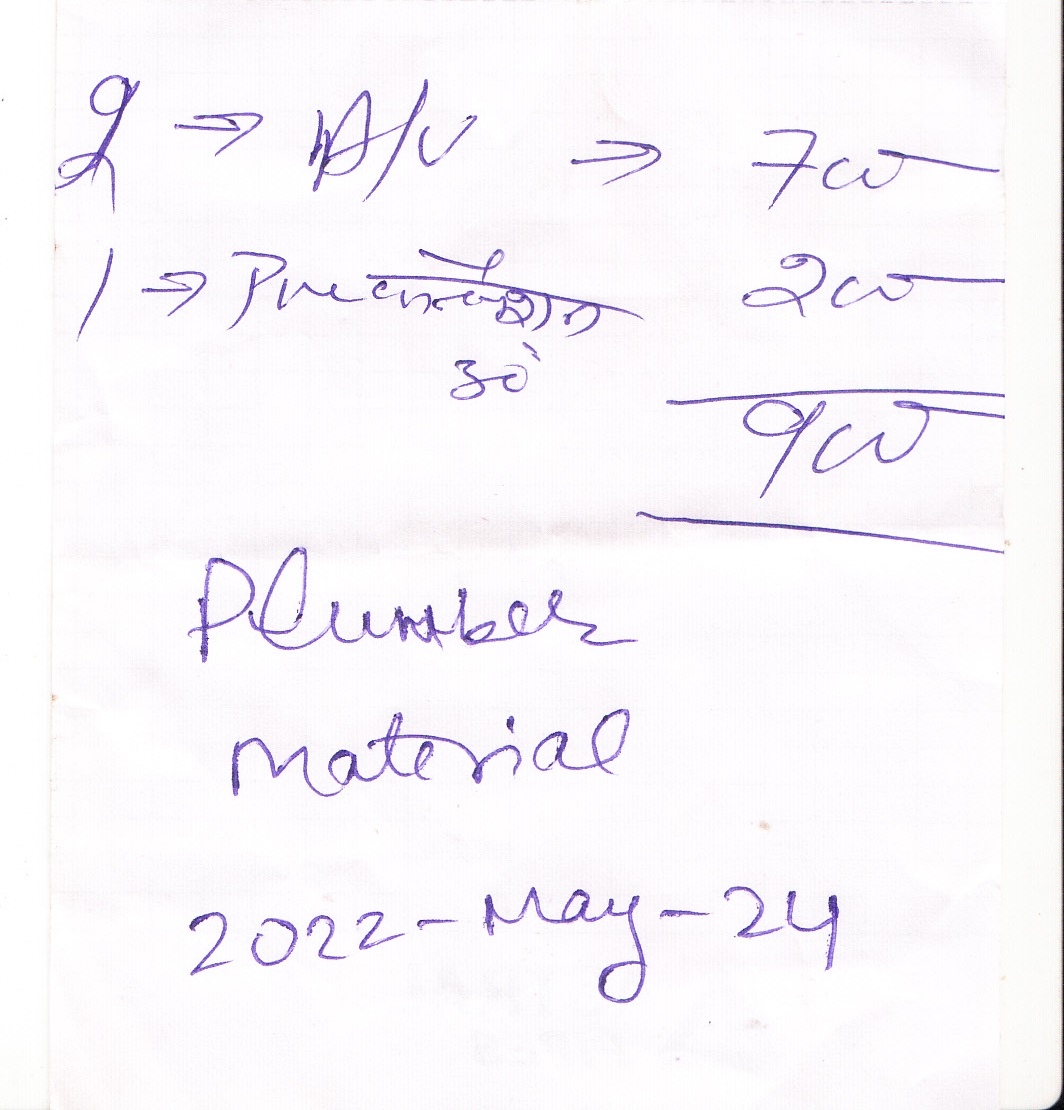 2 → A/V → 700
1 → PVC कनेक्शन 200
30"
900
Plumber
Material
2022-May-24